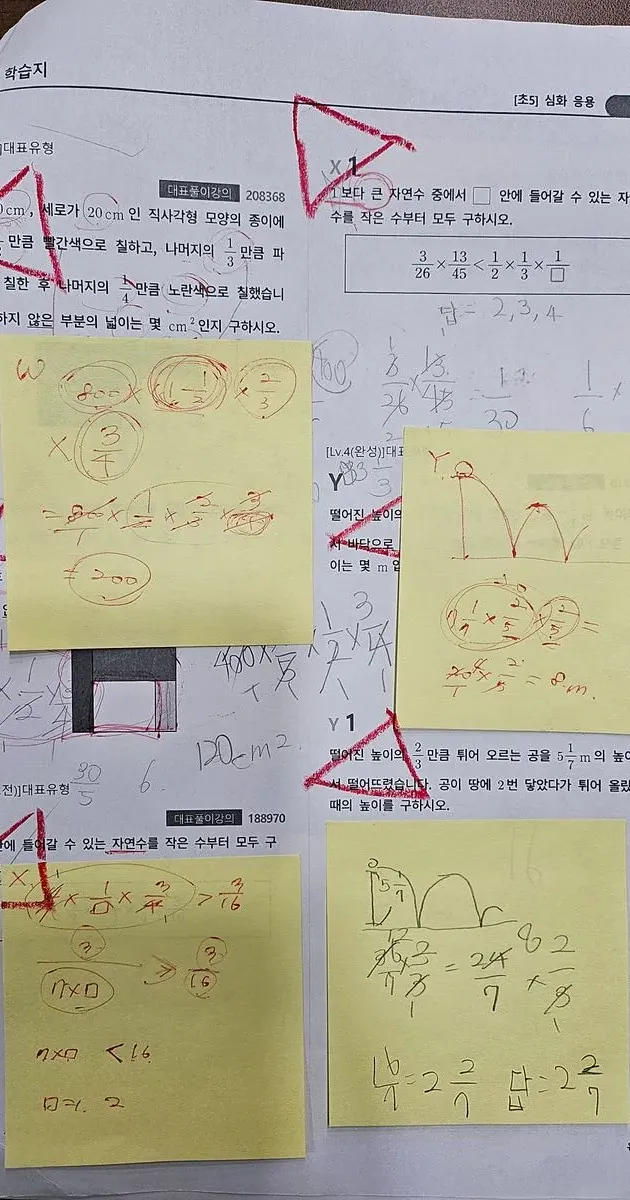 학습지
[초5] 심화 응용
]대표유형
대표풀이강의 208368
0cm, 세로가 20cm인 직사각형 모양의 종이에
만큼 빨간색으로 칠하고, 나머지의 1/3만큼 파
칠한 후 나머지의 1/4만큼 노란색으로 칠했습니
하지 않은 부분의 넓이는 몇 cm²인지 구하시오.
W
800 × (1-1/2) × 2/3
× 3/4
= 800/1 × 1/2 × 2/3 × 3/4
= 200
X 1
1보다 큰 자연수 중에서 □ 안에 들어갈 수 있는 자
수를 작은 수부터 모두 구하시오.
3/26 × 13/45 < 1/2 × 1/3 × 1/□
답 = 2, 3, 4
3/26 × 13/45 = 1/30
1/6 ×
[Lv.4(완성)]대표
Y
떨어진 높이의
서 바닥으로
이는 몇 m 입
Y.
× 2/5 × 2/5 =
20/1 × 2/5 = 8m.
400 × 2/3 × 1/2 × 3/4
120cm².
30/5 6.
Y 1
떨어진 높이의 2/3만큼 튀어 오르는 공을 5 1/7 m의 높이
서 떨어뜨렸습니다. 공이 땅에 2번 닿았다가 튀어 올랐
때의 높이를 구하시오.
5 1/7
36/7 × 2/3 = 24/7 × 2/3
16/7 = 2 2/7 답 = 2 2/7
전)]대표유형
대표풀이강의 188970
안에 들어갈 수 있는 자연수를 작은 수부터 모두 구
X.
× 1/□ × 3/4 > 3/16
3/(7×□) > 3/16
7×□ < 16
□=1. 2